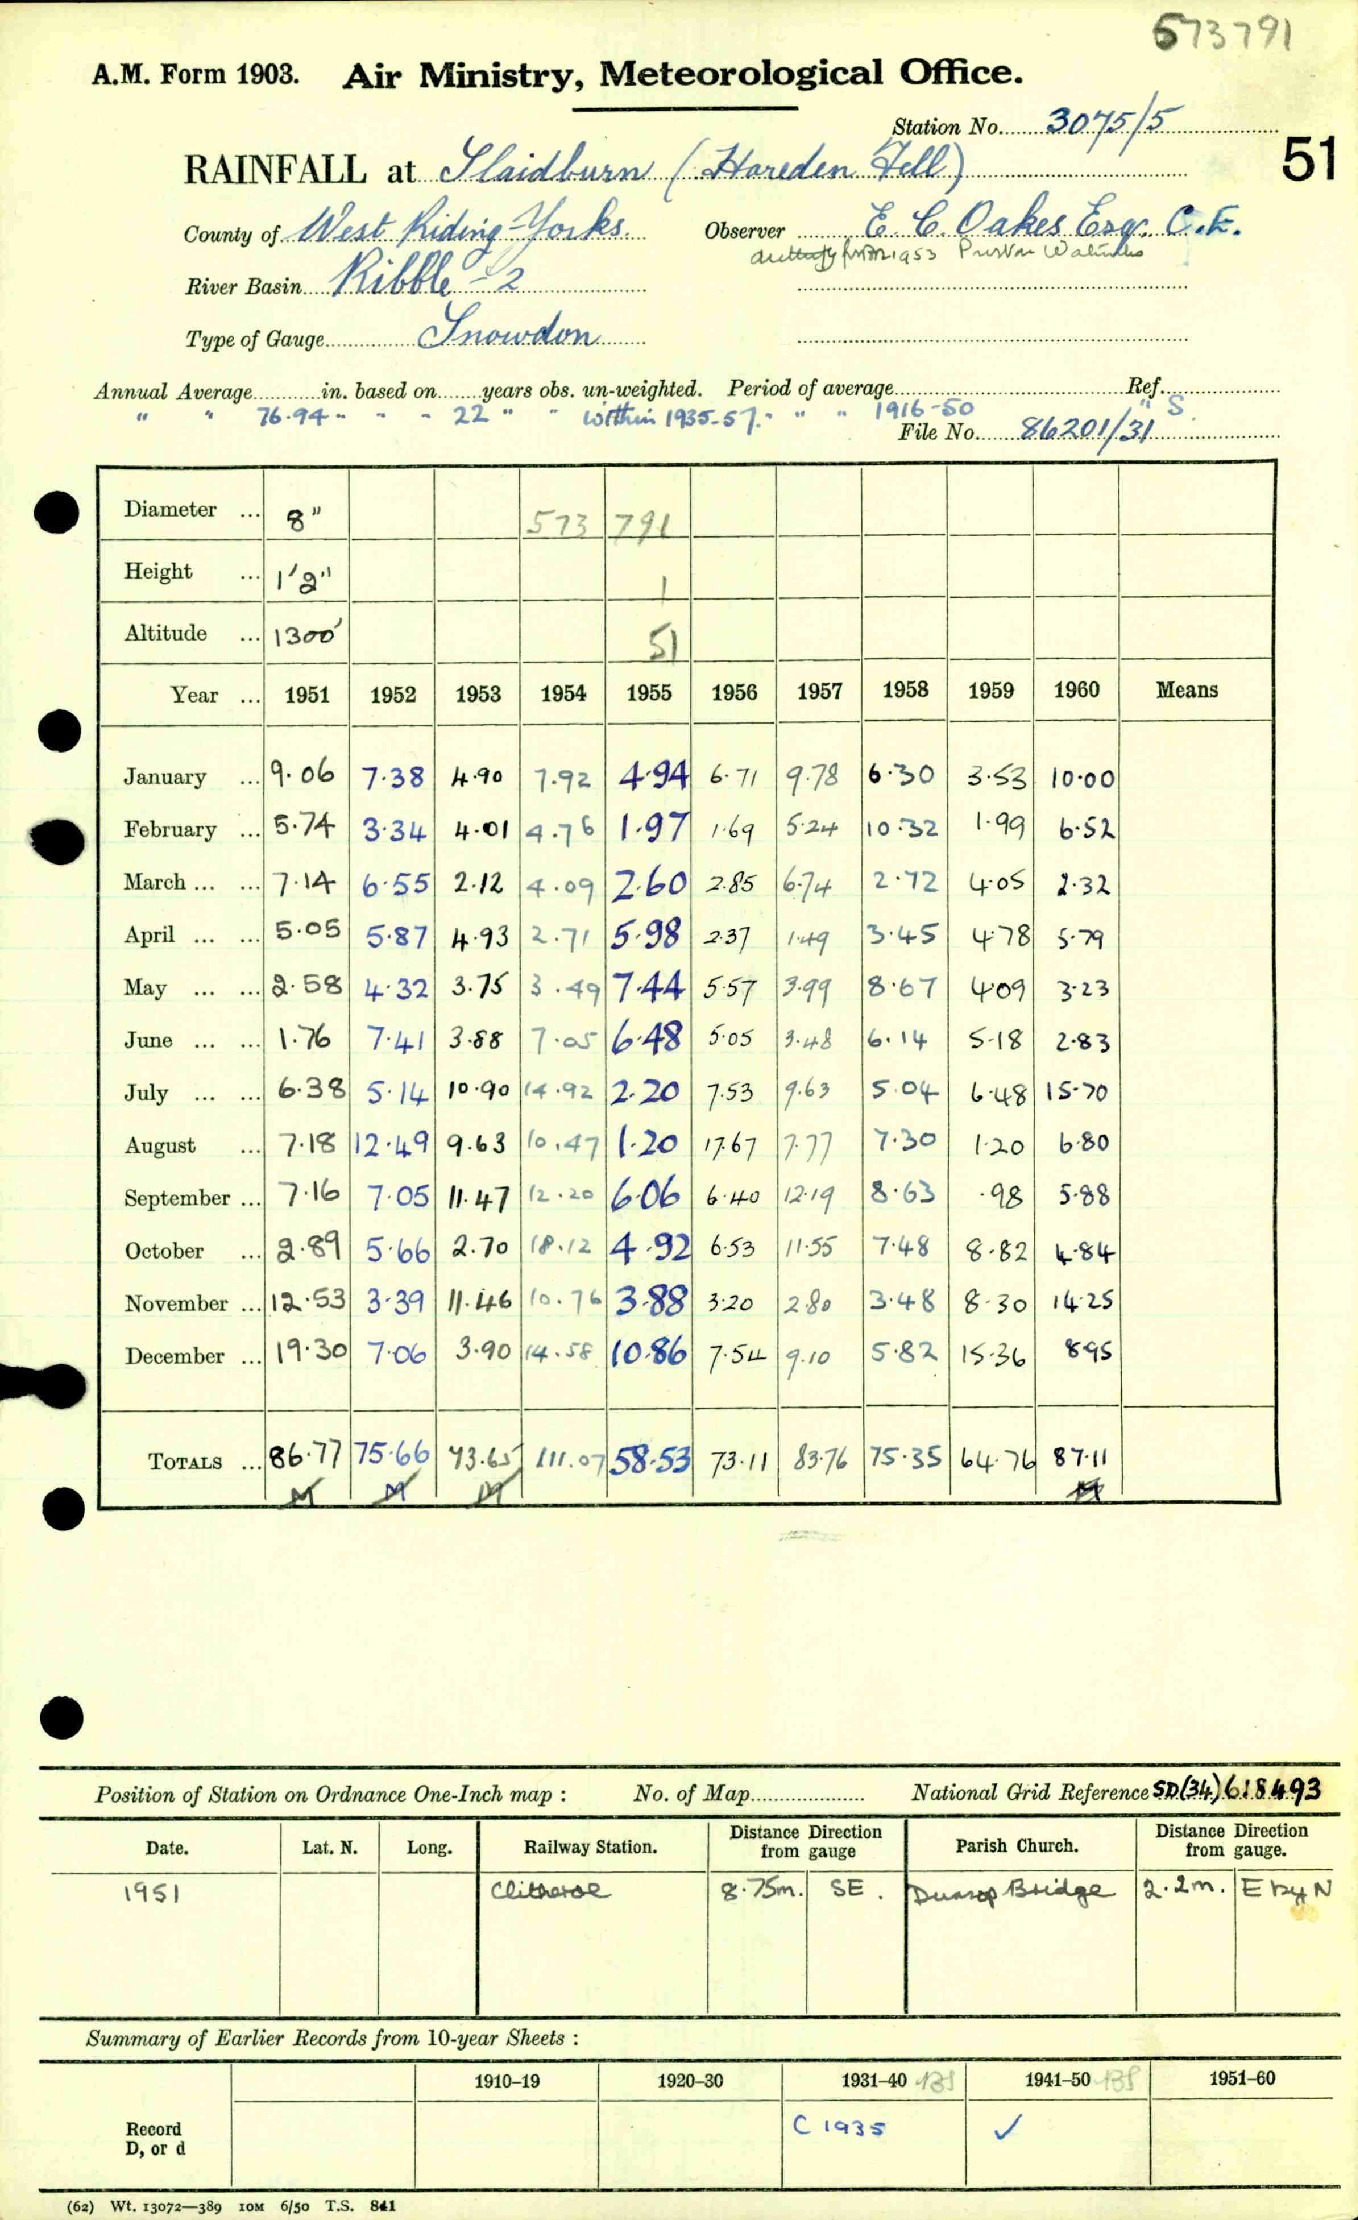 573791
A.M. Form 1903. Air Ministry, Meteorological Office.
Station No. 3075/5
51
RAINFALL at Slaidburn (Hareden Fell)
County of West Riding - Yorks. Observer E. C. Oakes Esq. C.E.
from 1953 Preston
River Basin Ribble - 2
Type of Gauge Snowdon
Annual Average in. based on years obs. un-weighted. Period of average Ref.
" " 76.94 " " " 22 " " within 1935-57. " " " 1916-50 " S.
File No. 86201/31
Diameter ... 8" 573 791
Height ... 1'2" 1
Altitude ... 1300' 51
Year ... 1951 1952 1953 1954 1955 1956 1957 1958 1959 1960 Means
January ... 9.06 7.38 4.90 7.92 4.94 6.71 9.78 6.30 3.53 10.00
February ... 5.74 3.34 4.01 4.76 1.97 1.69 5.24 10.32 1.99 6.52
March ... ... 7.14 6.55 2.12 4.09 2.60 2.85 6.74 2.72 4.05 2.32
April ... ... 5.05 5.87 4.93 2.71 5.98 2.37 1.49 3.45 4.78 5.79
May ... ... 2.58 4.32 3.75 3.49 7.44 5.57 3.99 8.67 4.09 3.23
June ... ... 1.76 7.41 3.88 7.05 6.48 5.05 3.48 6.14 5.18 2.83
July ... ... 6.38 5.14 10.90 14.92 2.20 7.53 9.63 5.04 6.48 15.70
August ... 7.18 12.49 9.63 10.47 1.20 17.67 7.77 7.30 1.20 6.80
September ... 7.16 7.05 11.47 12.20 6.06 6.40 12.19 8.63 .98 5.88
October ... 2.89 5.66 2.70 18.12 4.92 6.53 11.55 7.48 8.82 4.84
November ... 12.53 3.39 11.46 10.76 3.88 3.20 2.80 3.48 8.30 14.25
December ... 19.30 7.06 3.90 14.58 10.86 7.54 9.10 5.82 15.36 8.95
TOTALS ... 86.77 75.66 73.65 111.07 58.53 73.11 83.76 75.35 64.76 87.11
M M M M
Position of Station on Ordnance One-Inch map : No. of Map National Grid Reference SD(34)618493
Date. Lat. N. Long. Railway Station. Distance Direction from gauge Parish Church. Distance Direction from gauge.
1951 Clitheroe 8.75m. SE. Dunsop Bridge 2.2m. E by N
Summary of Earlier Records from 10-year Sheets :
1910–19 1920–30 1931–40 1941–50 1951–60
Record C 1935 ✓
D, or d
(62) Wt. 13072—389 10M 6/50 T.S. 841